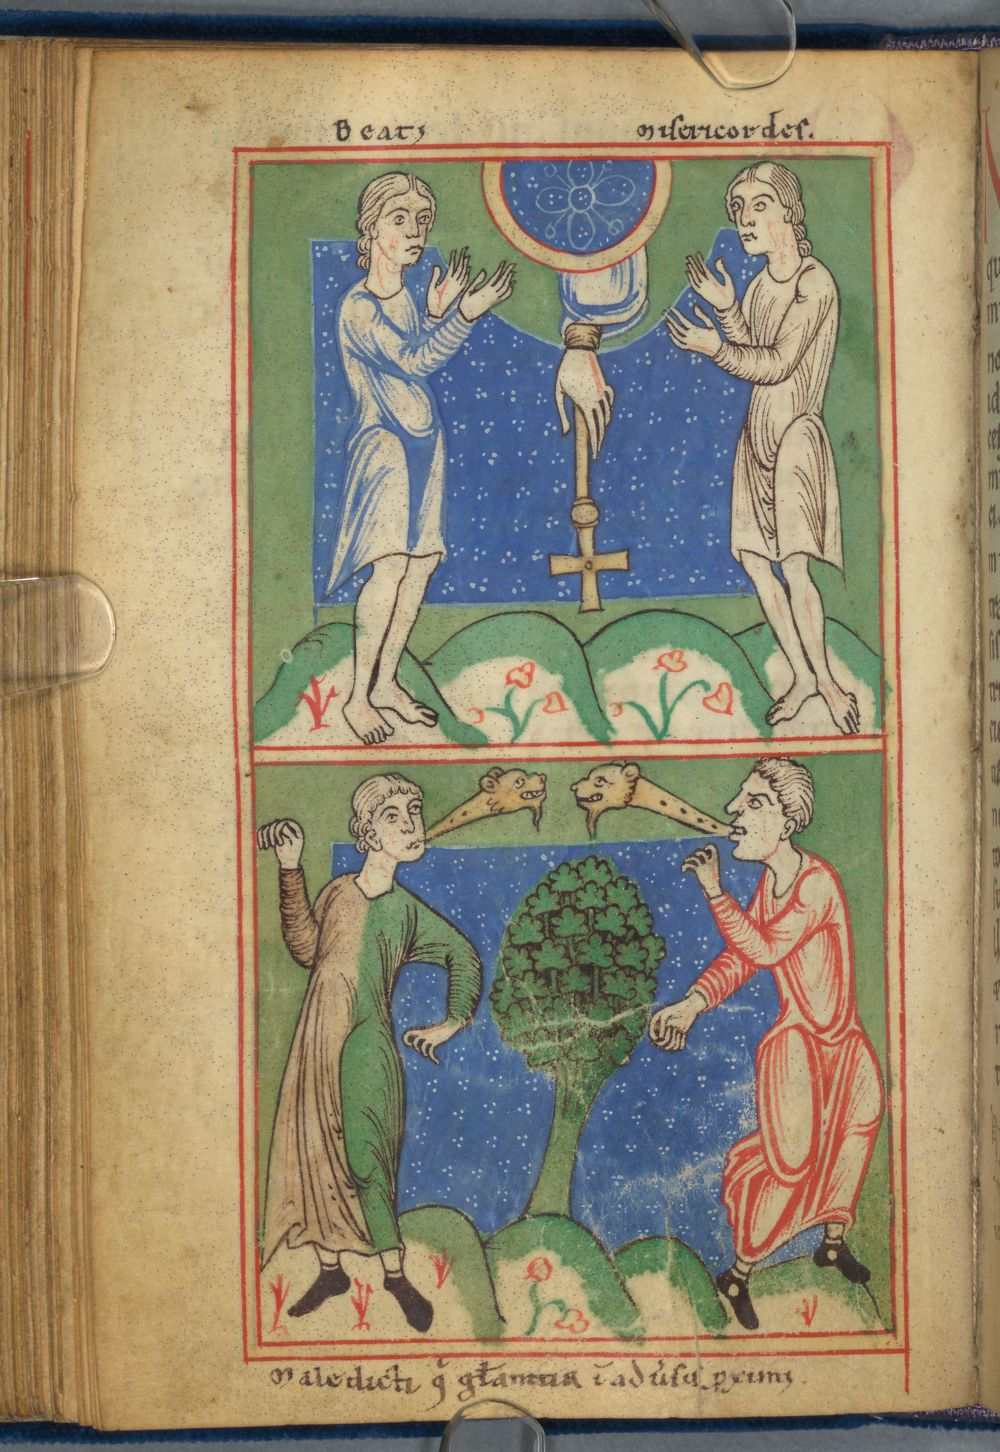 Beati misericordes.
Maledicti q̄ gl̄antur ī adūsū pximi.